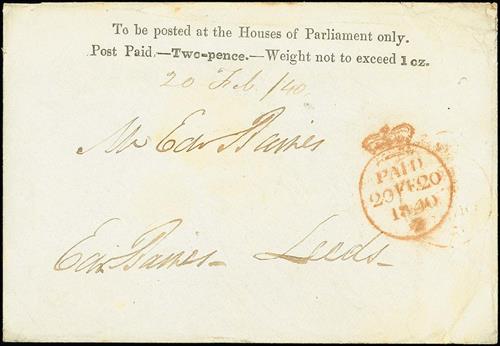 To be posted at the Houses of Parliament only.
Post Paid.—Two-pence.—Weight not to exceed 1 oz.
20 Feb /40
Mr Edw Baines
PAID
20 FE 20
1840
Edw Baines — Leeds —